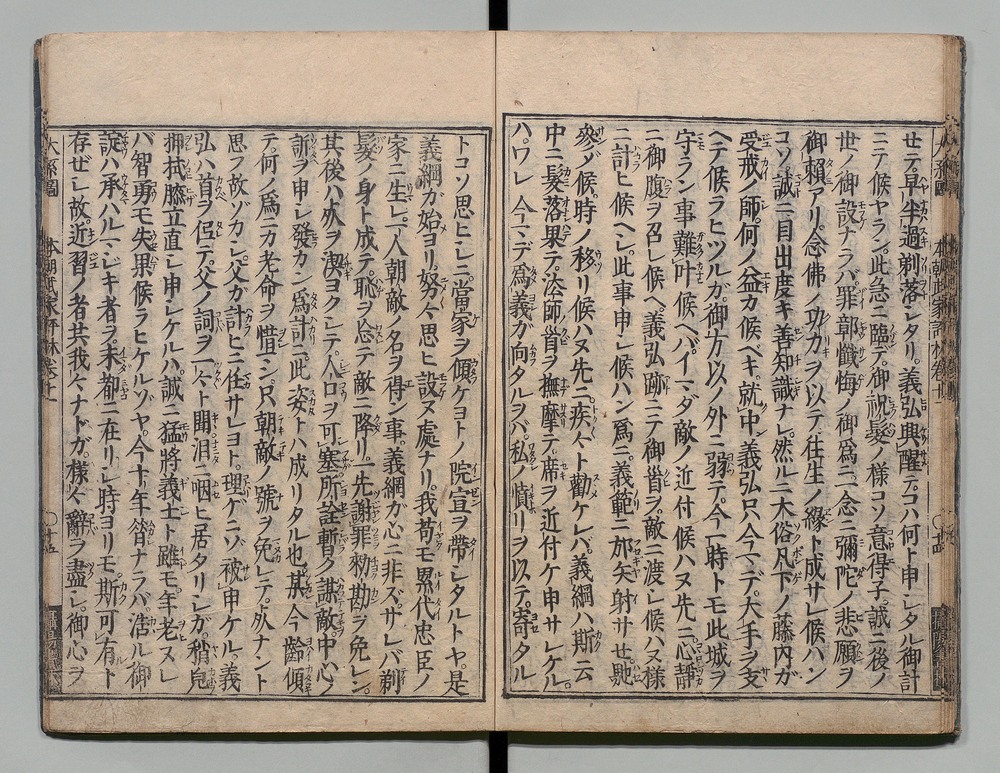 セテ早半過剃落レタリ。義弘興醒テコハ何ト申レタル御計
ニテ候ヤラン。此急ニ臨デ御祝髪ノ様コソ意得子。誠ニ後ノ
世ノ御設ナラバ。罪鄣懺悔ノ御爲ニ。一念ニ彌陀ノ悲願ヲ
御頼アリ。念佛ノ功力ヲ以テ往生ノ縁ト成サレ候ハン
コソ誠ニ目出度キ善知識ナレ。然ルニ木俗凡下ノ藤内ガ
受戒ノ師。何ノ益カ候ベキ。就中義弘只今マデ。大手ヲ支
ヘテ候ラヒツルガ。御方以ノ外ニ弱テ。今一時トモ此城ヲ
守ラン事難叶候ヘバ。イマダ敵ノ近付候ハヌ先ニ。心靜
ニ御腹ヲ召レ候ヘ。義弘跡ニテ御首ヲ。敵ニ渡レ候ハヌ樣
ニ計ヒ候ヘレ。此事申レ候ハン爲ニ。義範ニ邡矢射サセ。馳
參ジ候。時ノ移リ候ハヌ先ニ疾々ト勸ケレバ。義綱ハ斯云
中ニ髮落果テ。法師首ヲ撫摩テ。席ヲ近付ケ申サレケル
ハ。ワレ今マデ爲義ガ向タルヲバ。私ノ憤リヲ以テ。寄タル
トコソ思ヒレニ。當家ヲ傾ケヨトノ院宣ヲ帶レタルトヤ。是
義綱ガ始ヨリ努々思ヒ設ヌ處ナリ。我苟モ累代忠臣ノ
家ニ生レ。一人朝敵ノ名ヲ得ン事。義綱ガ心ニ非ズ。サレバ剃
髮ノ身ト成テ。恥ヲ忍テ敵ニ降リ。一先謝罪勅勘ヲ免レン。
其後ハ夙ヲ潔ヨクレテ。人口ヲ可塞所詮暫ク謀敵。中心ノ
訴ヲ申レ發カン爲計ニ。此姿トハ成リタル也。某今齡傾
テ。何ノ爲ニカ老命ヲ惜ベシ。只朝敵ノ號ヲ免レテ。夙ナント
思フ故ゾカレ。父ガ計ヒニ任サレヨト。理ゲニゾ被申ケル。義
弘ハ首ヲ低テ。父ノ詞ヲ一々ト聞。泪ニ咽ヒ居タリレガ。稍兒
拥拭膝立直レ申レケルハ。誠ニ猛將義士ト雖モ。年老ヌレ
バ智勇モ失果候ラヒケルゾヤ。今十年若ナラバ。浩ル御
諚ハ承ハルマジキ者ヲ。未都ニ在リレ時ヨリモ。斯可有ト
存ゼレ故。近習ノ者共我々ナドガ。樣々辭ヲ盡レ。御心ヲ